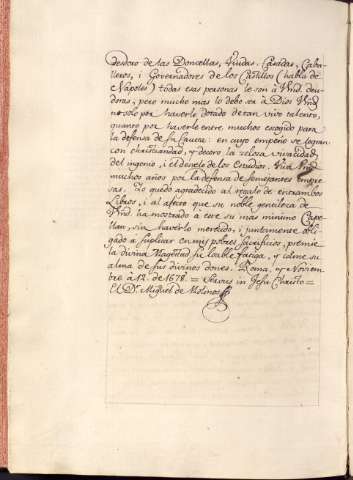 desdoro de las Doncellas, Viudas, Casadas, Caba-
lleros, i Governadores de los Castillos (habla de
Napoles) todas esas personas le son à Vmd. deu-
doras, pero mucho mas lo debo ser à Dios Vmd.
no solo por haverle dotado de tan vivo talento,
quanto por haverle entre muchos escogido para
la defensa de su Causa: en cuyo empeño se logran
con christiandad, y decoro la zelosa vivacidad
del ingenio, i el desvelo de los Estudios. Viva Vmd.
muchos años por la defensa de semejantes Empre-
sas. Yo quedo agradecido al regalo de entrambos
Libros, i al afecto que su noble gentileza de
Vmd. ha mostrado à este su mas minimo Cape-
llan, sin haverlo merecido; i juntamente obli-
gado à suplicar en mis pobres Sacrificios, premie
la divina Magestad su loable fatiga, y colme su
alma de sus divinos dones. Roma, y Noviem-
bre à 12 de 1678. = Servus in Jesu Christo =
El Dr. Miguel de Molinos